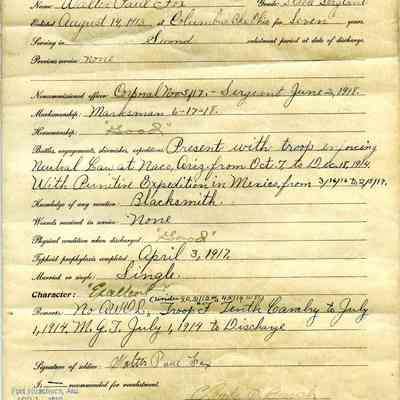 Name: Walter Paul Fox Grade:
August 14, 1913, at Columbus Bks Ohio for Seven years.
Serving in Second enlistment period at date of discharge.
Previous service: None
Noncommissioned officer: Corporal Nov 5/17. - Sergeant June 2, 1918.
Marksmanship: Marksman 6-17-18.
Horsemanship: "Good"
Battles, engagements, skirmishes, expeditions: Present with troop enforcing
Neutral Law at Naco, Ariz from Oct. 7 to Dec. 18, 1914.
With Punitive Expedition in Mexico, from 3/16/16 to 2/5/17.
Knowledge of any vocation: Blacksmith.
Wounds received in service: None
Physical condition when discharged: "Good"
Typhoid prophylaxis completed April 3, 1917.
Married or single: Single.
Character: "Excellent"
Remarks: No AWOL Troop "F" Tenth Cavalry to July
1, 1914. M.G.T. July 1, 1914 to Discharge
Signature of soldier: Walter Paul Fox
Is — recommended for reenlistment.
Fort Huachuca, Ariz